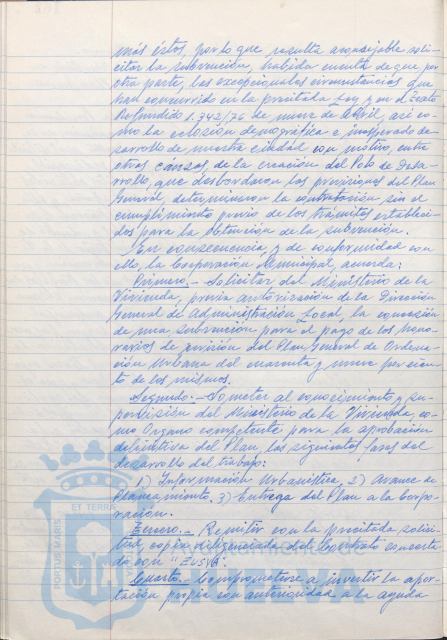 más éstos, por lo que resulta aconsejable soli-
citar la subvención, habida cuenta de que por
otra parte, las excepcionales circunstancias que
han concurrido en la precitada Ley y en el Texto
Refundido 1.342/76 de nueve de Abril, así co-
mo la eclosión demográfica e inesperado de-
sarrollo de nuestra ciudad con motivo, entre
otras causas, de la creación del Polo de Desa-
rrollo, que desbordaron las previsiones del Plan
General, determinaron la contratación sin el
cumplimiento previo de los trámites estableci-
dos para la obtención de la subvención.
En consecuencia, y de conformidad con
ello, la Corporación Municipal, acuerda:
Primero.- Solicitar del Ministerio de la
Vivienda, previa autorización de la Dirección
General de Administración Local, la concesión
de una subvención para el pago de los hono-
rarios de revisión del Plan General de Ordena-
ción Urbana del cuarenta y nueve por cien-
to de los mismos.
Segundo.- Someter al conocimiento y su-
pervisión del Ministerio de la Vivienda, co-
mo Organo competente para la aprobación
definitiva del Plan, las siguientes fases del
desarrollo del trabajo:
1) Información Urbanística. 2) Avance de
Planeamiento. 3) Entrega del Plan a la Corpo-
ración.
Tercero.- Remitir con la precitada solici-
tud, copia diligenciada del Contrato concerta-
do con "EUSYA".
Cuarto.- Comprometerse a invertir la apor-
tación propia con anterioridad a la ayuda
PORTUS MARIS ET TERRÆ
HUELVA